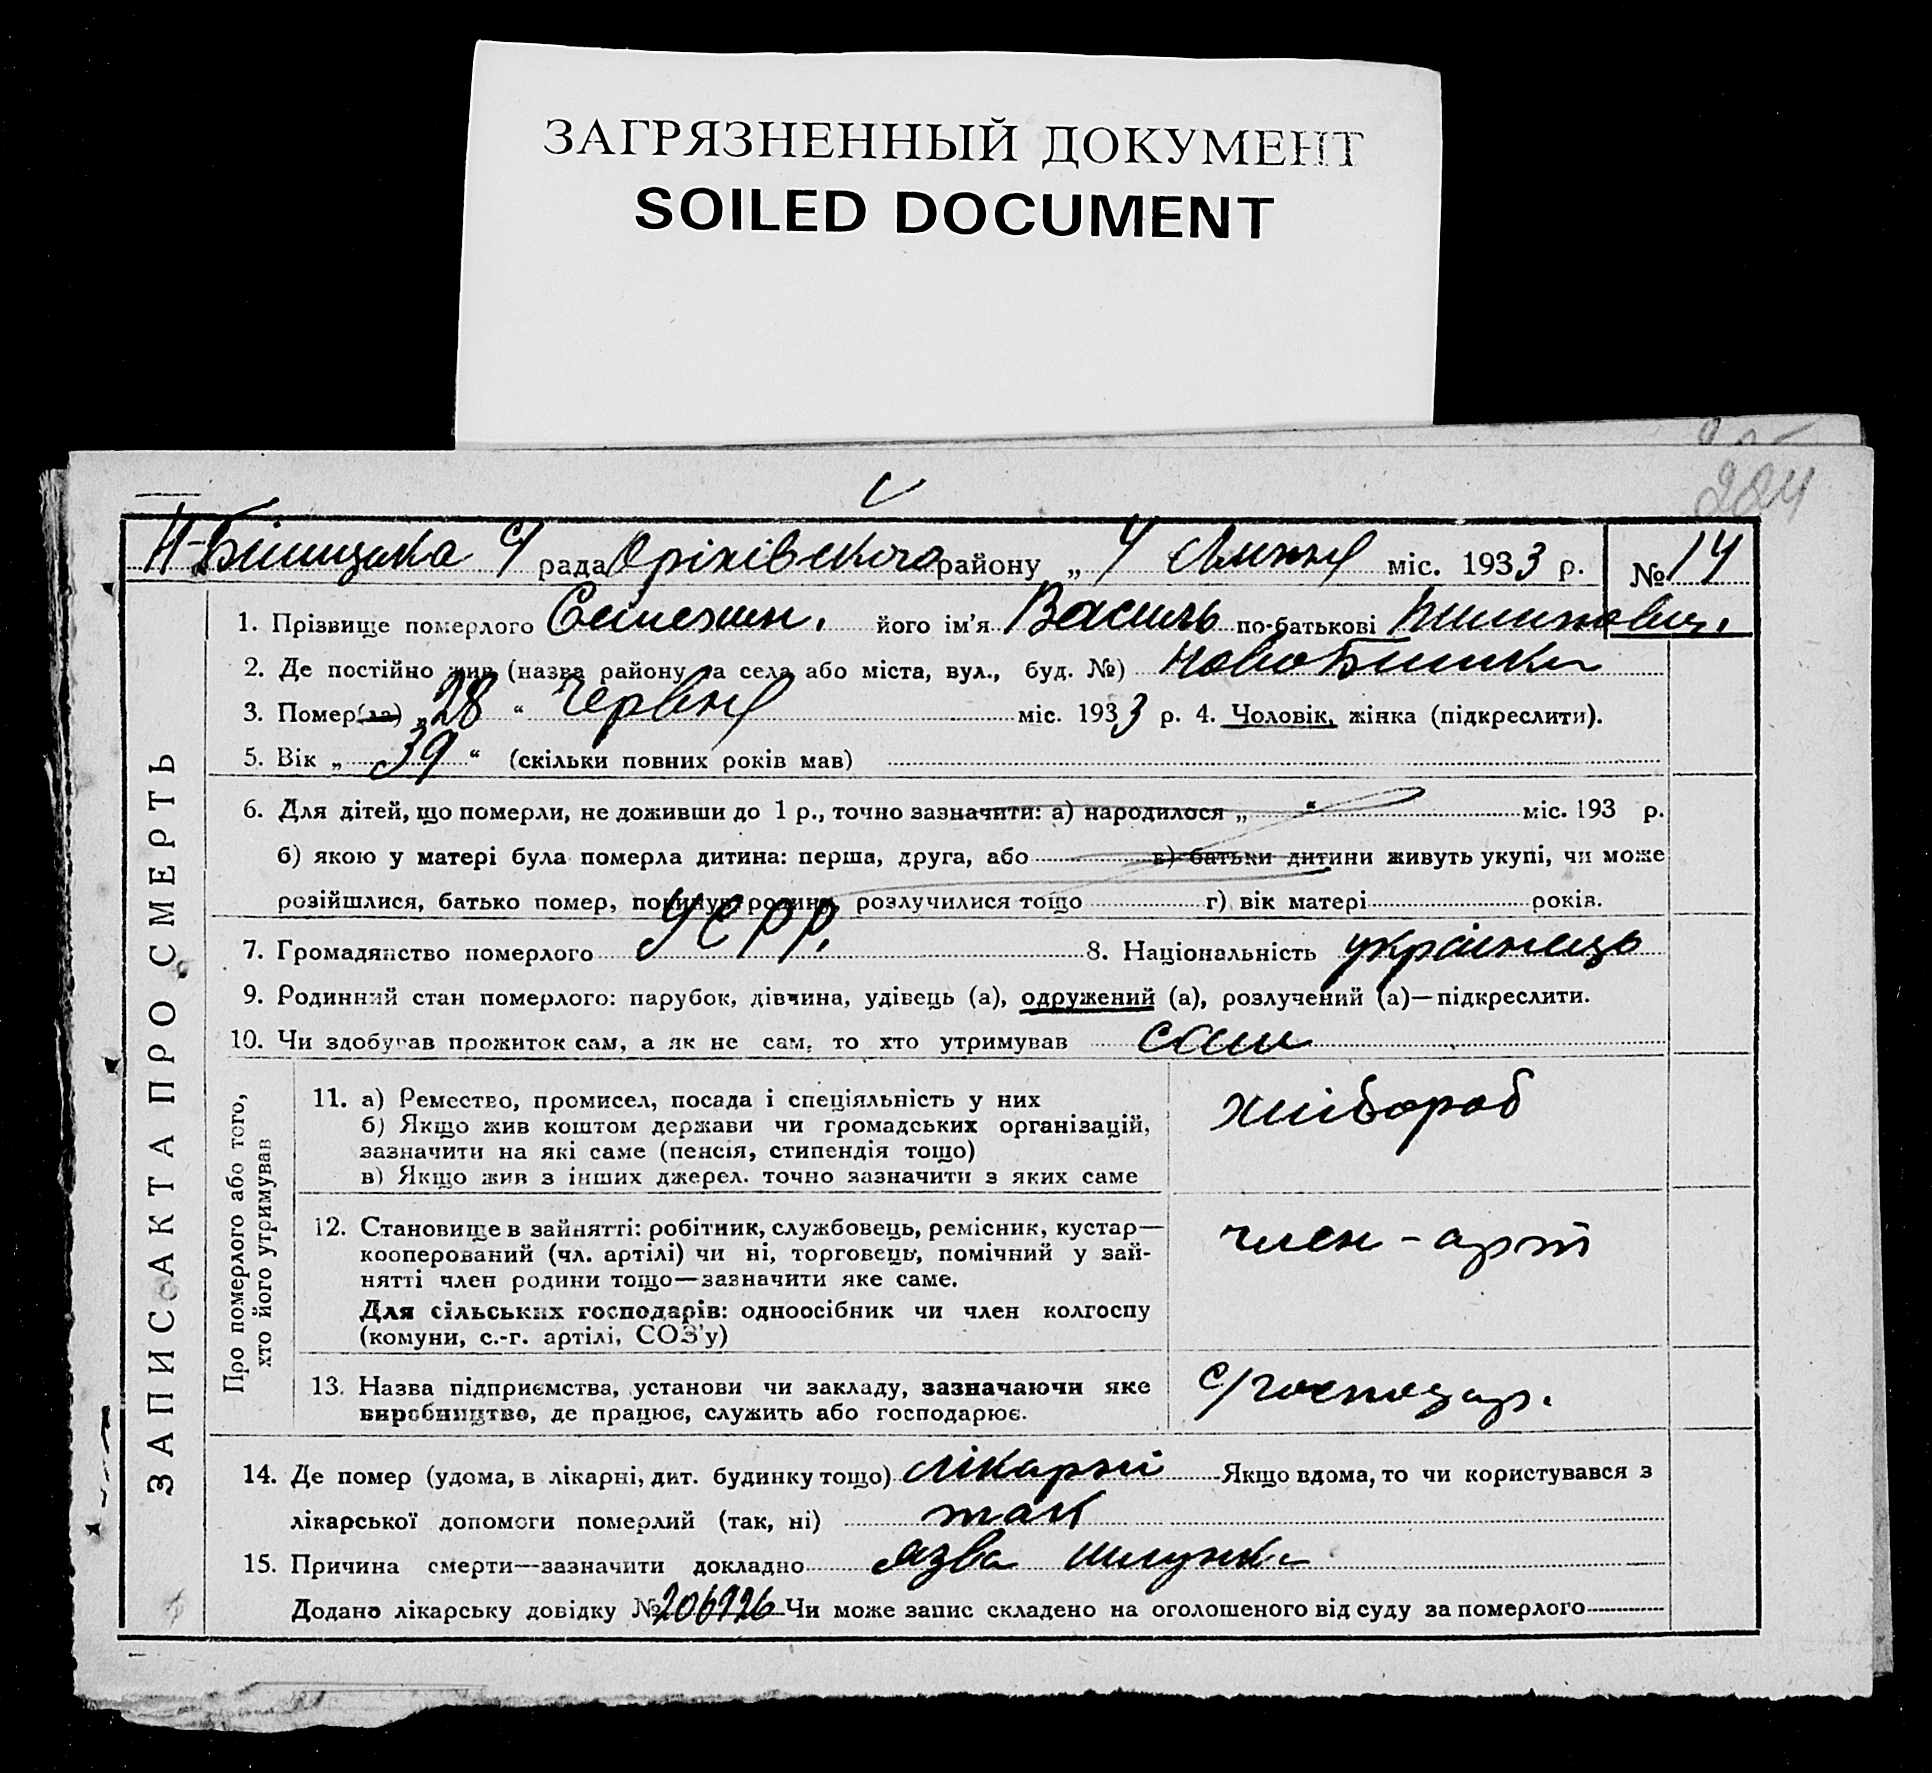 ЗАГРЯЗНЕННЫЙ ДОКУМЕНТ
SOILED DOCUMENT
284
рада Оріхівського району „ 4 Липня міс. 1933 р. № 14
1. Прізвище померлого його ім'я Василь по-батькові
2. Де постійно жив (назва району та села або міста, вул., буд. №)
3. Помер(ла) „ 28 “ Червня міс. 1933 р. 4. Чоловік, жінка (підкреслити).
5. Вік „ 39 “ (скільки повних років мав)
6. Для дітей, що померли, не доживши до 1 р., точно зазначити: а) народилося „ “ міс. 193 р.
б) якою у матері була померла дитина: перша, друга, або в) батьки дитини живуть укупі, чи може
розійшлися, батько помер, покинув родину, розлучилися тощо г) вік матері років.
7. Громадянство померлого УСРР. 8. Національність українець
9. Родинний стан померлого: парубок, дівчина, удівець (а), одружений (а), розлучений (а)—підкреслити.
10. Чи здобував прожиток сам, а як не сам, то хто утримував сам
ЗАПИС АКТА ПРО СМЕРТЬ
Про померлого або того,
хто його утримував
11. а) Ремество, промисел, посада і спеціяльність у них
б) Якщо жив коштом держави чи громадських організацій,
зазначити на які саме (пенсія, стипендія тощо)
в) Якщо жив з інших джерел. точно зазначити з яких саме
хлібороб
12. Становище в зайнятті: робітник, службовець, ремісник, кустар—
кооперований (чл. артілі) чи ні, торговець, помічний у зай-
нятті член родини тощо—зазначити яке саме.
Для сільських господарів: одноосібник чи член колгоспу
(комуни, с.-г. артілі, СОЗ'у)
член - арт
13. Назва підприємства, установи чи закладу, зазначаючи яке
виробництво, де працює, служить або господарює.
с/господар.
14. Де помер (удома, в лікарні, дит. будинку тощо) лікарні Якщо вдома, то чи користувався з
лікарської допомоги померлий (так, ні) так
15. Причина смерти—зазначити докладно язва шлунка
Додано лікарську довідку № Чи може запис складено на оголошеного від суду за померлого